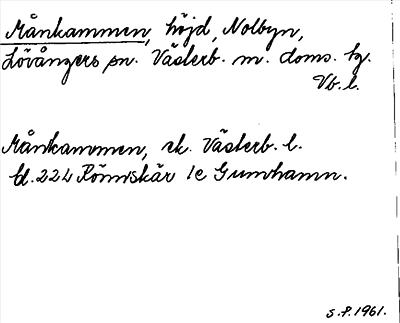 Månkammen, höjd, Nolbyn,
Lövångers sn. Västerb. m. doms. tg.
Vb. l.
Månkammen, sk. Västerb. l.
bl. 22 L Rönnskär 1e Gumhamn.
S.P. 1961.